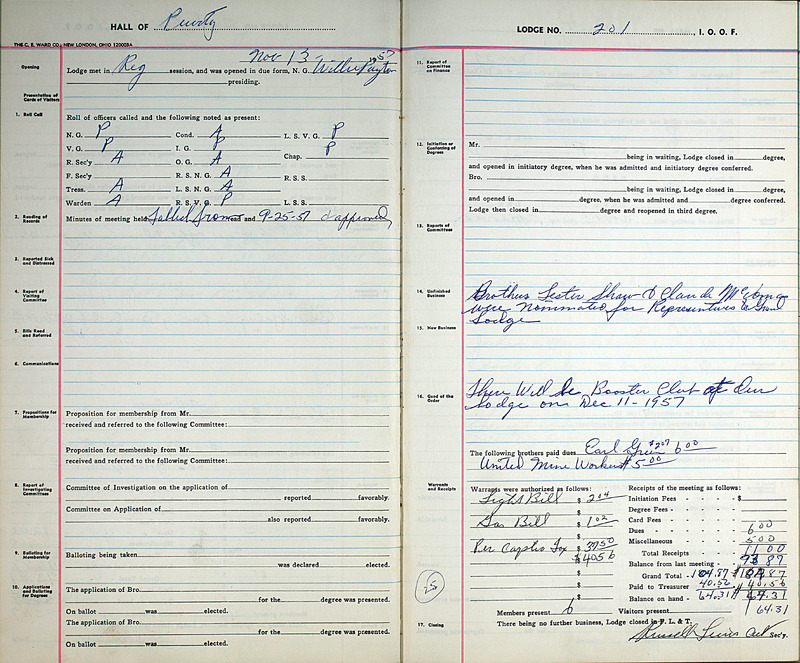 HALL OF Purity
THE C. E. WARD CO., NEW LONDON, OHIO 12003BA
Nov 13 1957
Opening
Lodge met in Reg session, and was opened in due form, N. G. Willie Payton
presiding.
Presentation of Cards of Visitors
1. Roll Call
Roll of officers called and the following noted as present:
N. G. P Cond. A L. S. V. G. P
V. G. P I. G. P Chap. P
R. Sec'y A O. G. A
F. Sec'y R. S. N. G. A R. S. S.
Treas. A L. S. N. G. A
Warden A R. S. V. G. P L. S. S.
2. Reading of Records
Minutes of meeting held read and 9-25-57 approved
3. Reported Sick and Distressed
4. Report of Visiting Committee
5. Bills Read and Referred
6. Communications
7. Propositions for Membership
Proposition for membership from Mr.
received and referred to the following Committee:
Proposition for membership from Mr.
received and referred to the following Committee:
8. Report of Investigating Committees
Committee of Investigation on the application of
reported favorably.
Committee on Application of
also reported favorably.
9. Balloting for Membership
Balloting being taken
was declared elected.
10. Applications and Balloting for Degrees
The application of Bro.
for the degree was presented.
On ballot was elected.
The application of Bro.
for the degree was presented.
On ballot was elected.
LODGE NO. 201, I. O. O. F.
11. Report of Committee on Finance
12. Initiation or Conferring of Degrees
Mr.
being in waiting, Lodge closed in degree,
and opened in initiatory degree, when he was admitted and initiatory degree conferred.
Bro.
being in waiting, Lodge closed in degree,
and opened in degree, when he was admitted and degree conferred.
Lodge then closed in degree and reopened in third degree.
13. Reports of Committees
14. Unfinished Business
Brothers Lester Shaw & Claude
were Nominated for Representives to Grand
Lodge
15. New Business
16. Good of the Order
There Will be Booster Club at Our
Lodge on Dec 11-1957
The following brothers paid dues Earl Green 6 00
United Mine Workers $5 00
Warrants and Receipts
Warrants were authorized as follows:
Light Bill $ 2 04
Gas Bill $ 1 02
Per Capita Tax $ 37 50
$ 40 56
$
$
$
Receipts of the meeting as follows:
Initiation Fees - - - - $
Degree Fees - - - -
Card Fees - - - -
Dues - - - - 6 00
Miscellaneous - - - - 5 00
Total Receipts - - 11 00
Balance from last meeting - 93 87
Grand Total - 104.87 $ 104 87
Paid to Treasurer 40.56 40.56
Balance on hand - 64.31 $ 64.31
64.31
25
Members present 6 Visitors present
17. Closing
There being no further business, Lodge closed in F. L. & T.
Russell Lewis Act Sec'y.